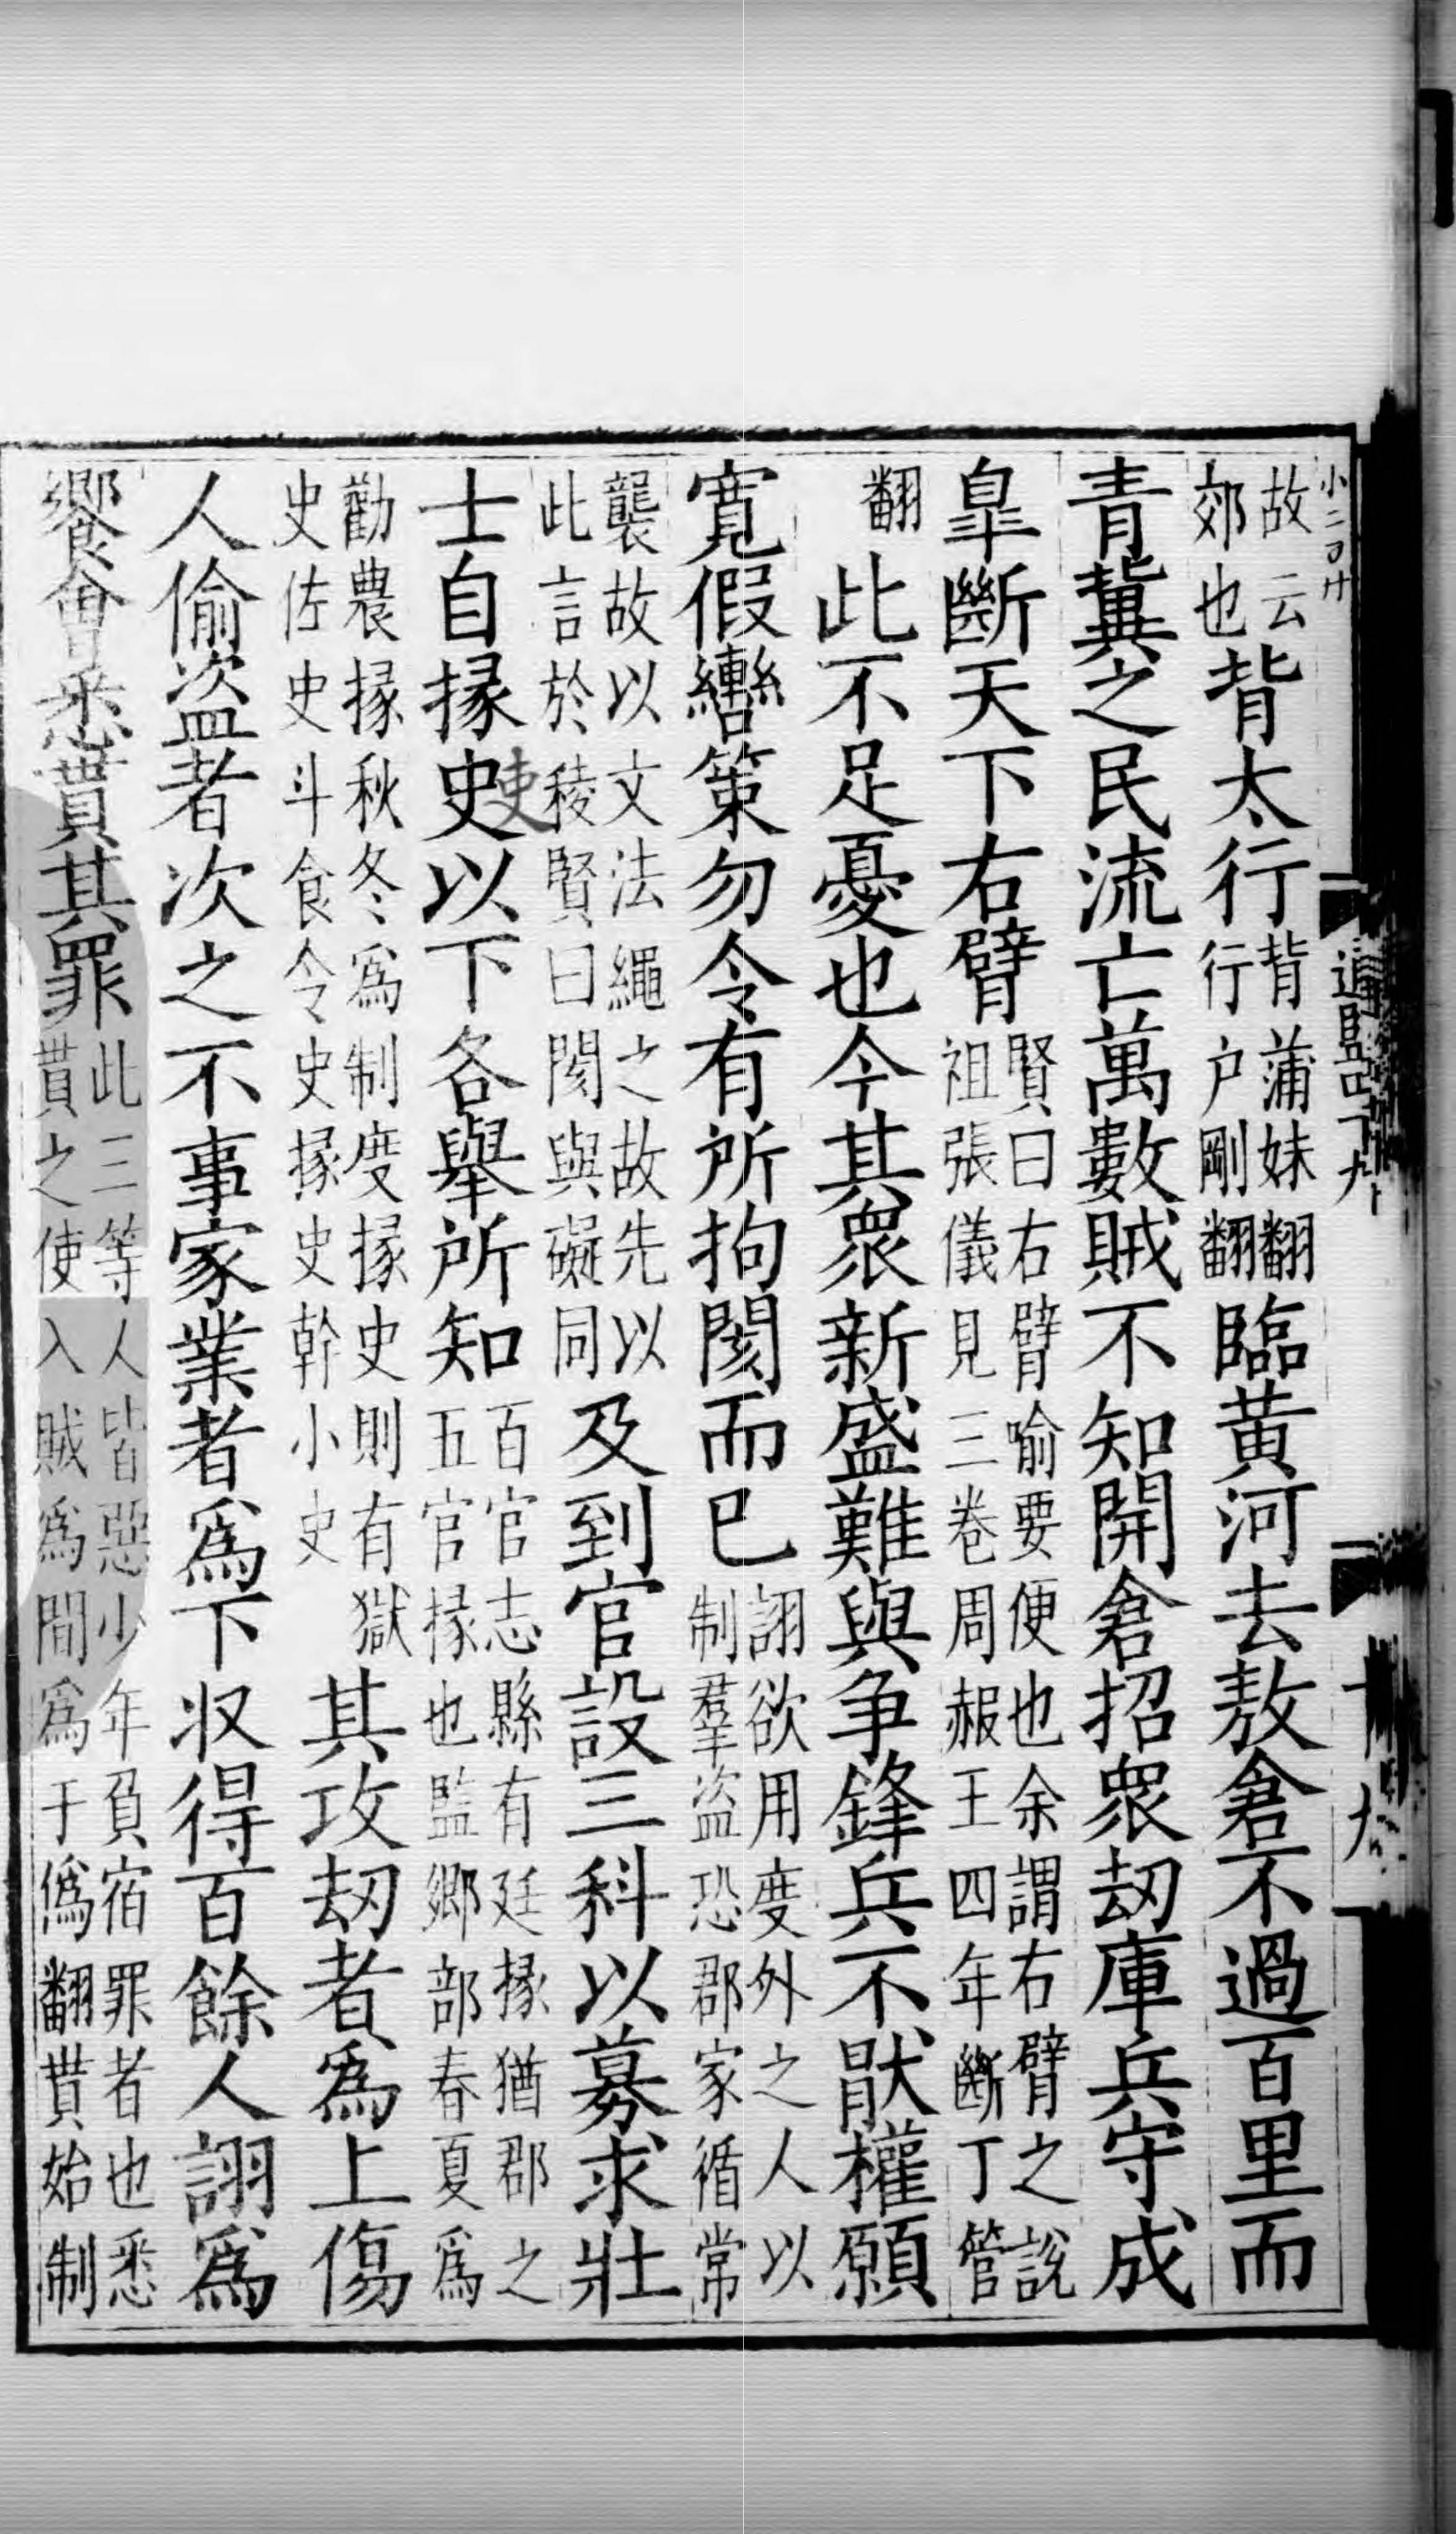 故云郊也背太行背蒲妹翻行戶剛翻臨黃河去敖倉不過百里而
青冀之民流亡萬數賊不知開倉招衆劫庫兵守成
皐斷天下右臂賢曰右臂喻要便也余謂右臂之說祖張儀見三卷周赧王四年斷丁管
翻此不足憂也今其衆新盛難與争鋒兵不猒權願
寛假轡策勿令有所拘閡而已詡欲用度外之人以制羣盜恐郡家循常
襲故以文法繩之故先以此言於稜賢曰閡與礙同及到官設三科以募求壯
士自掾史以下各舉所知百官志縣有廷掾猶郡之五官掾也監鄉部春夏爲
勸農掾秋冬爲制度掾史則有獄史佐史斗食令史掾史幹小史其攻劫者爲上傷
人偷盜者次之不事家業者爲下収得百餘人詡爲
饗會悉貰其罪此三等人皆惡少年負宿罪者也悉貰之使入賊爲間爲于僞翻貰始制